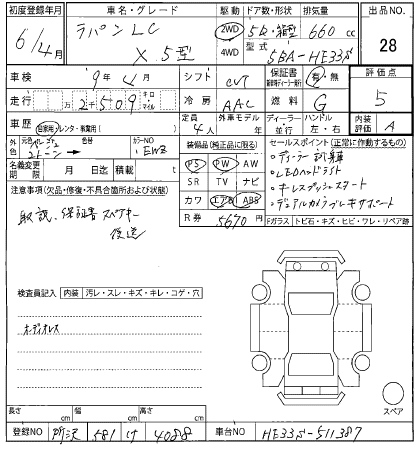 初度登録年月 車名・グレード 駆動 ドア数・形状 排気量 出品NO.
6/4月 ラパン LC X 5型 2WD 4WD 5D・箱型 660cc 28
型式 5BA-HE33S
車検 9年4月 シフト CVT 保証書 有・無 評価点
走行 万2千509 キロ マイル 冷房 AAC 燃料 G 5
車歴 自家用・レンタ・事業用( ) 定員 4人 外車モデル 年 ディーラー 並行 ハンドル 左・右 内装評価 A
外色 元色 色替 カラーNO EWB 装備品(純正品に限る) セールスポイント(正常に作動するもの)
2トーン PS PW AW ・ディーラー記録簿
名義変更期限 月 日迄 積載 t SR TV ナビ ・LEDヘッドライト
注意事項(欠品・修復・不具合箇所および状態) カワ エアB ABS ・キーレスプッシュスタート
取説、保証書 スペアキー R券 5670円 ・デュアルカメラブレーキサポート
後送 Fガラス トビ石・キズ・ヒビ・ワレ・リペア跡
検査員記入 内装 汚レ・スレ・キズ・キレ・コゲ・穴
オーディオレス
スペア
長さ cm 幅 cm 高さ cm
登録NO 所沢 581 け 4088 車台NO HE33S-511387